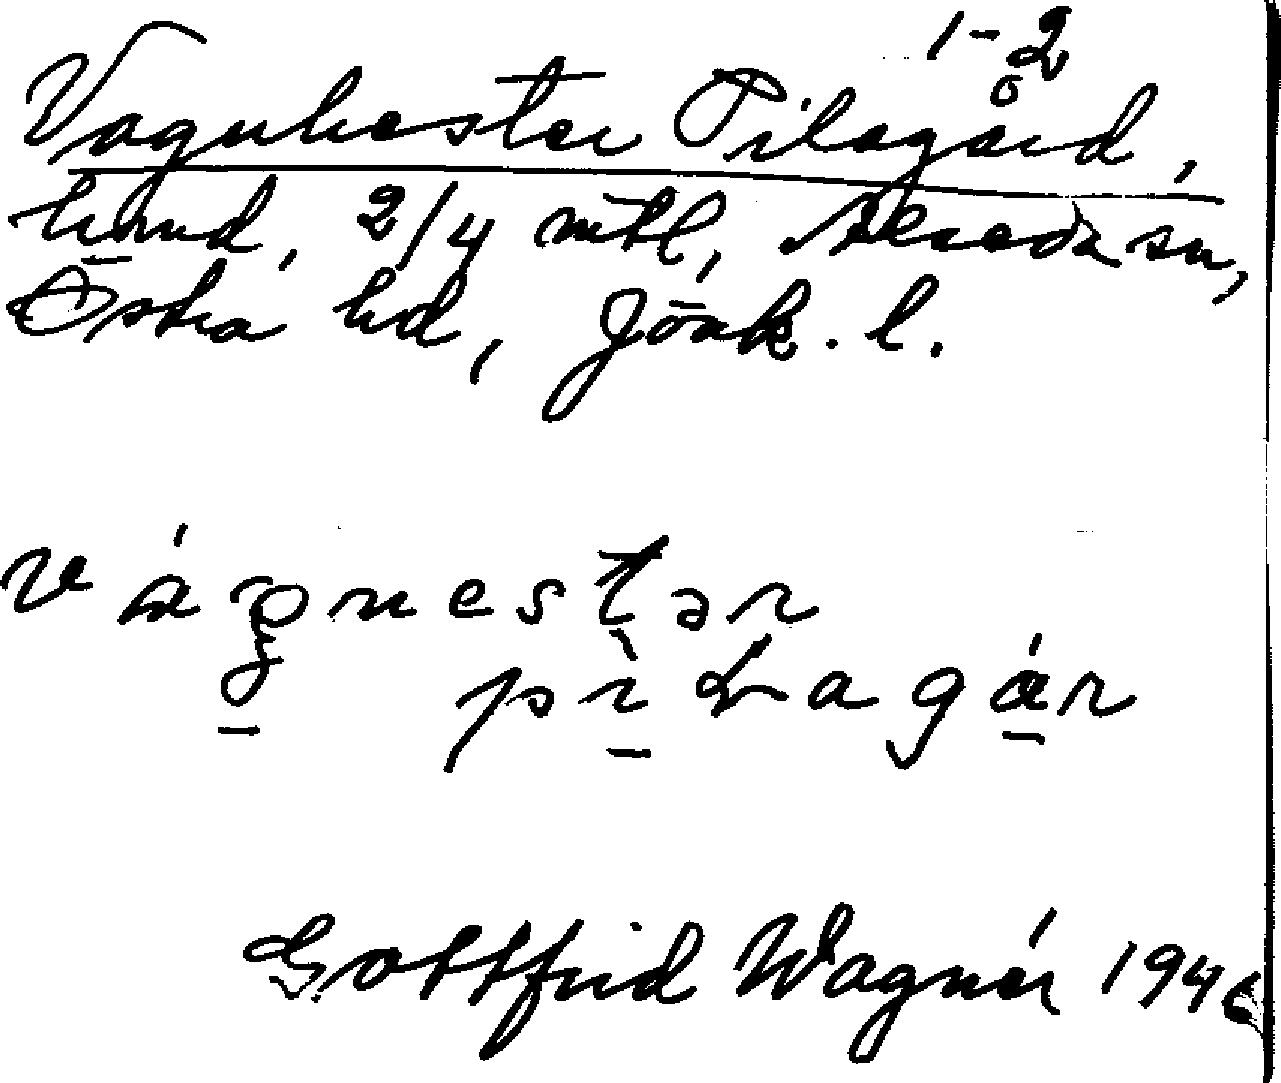 1-2
Vagnhester Pilagård,
hmd, 2/4 mtl, Alseda sn,
Östra hd, Jönk. l.
vágnestər
pìLagár
Gottfrid Wagnér 1946